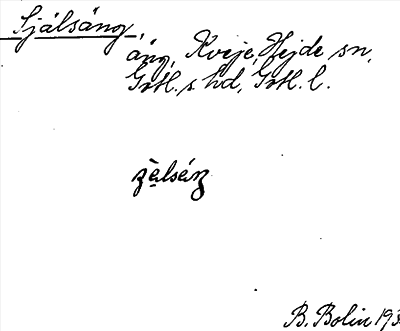 Själsäng,
äng, Kveje, Hejde sn,
Gotl. s. hd, Gotl. l.
B. Bolin 193